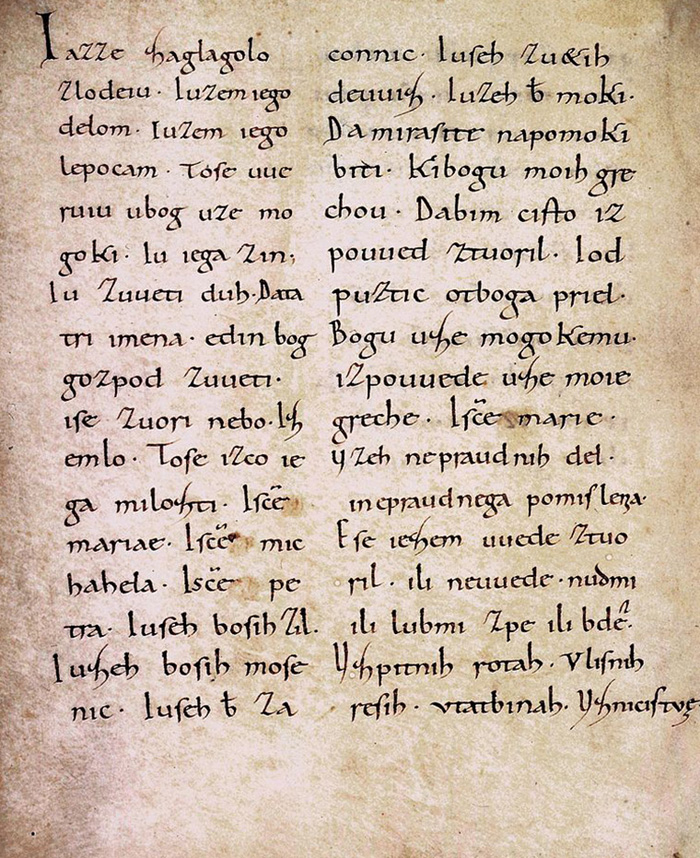 Iazze shaglagolo
zlodeiu. Iuzem iego
delom. Iuzem iego
lepocam. Tose uue
ruiu ubog uze mo
goki. Iu iega zin;
Iu zuueti duh. Data
tri imena. edin bog
gozpod zuueti.
ise zuori nebo. Ish
emlo. Tose izco ie
ga miloshti. Isc̄e
mariae. Isc̄e mic
hahela. Isc̄e pe
tra. Iuseh bosih zil.
Iusheh bosih mose
nic. Iuseh ƀ za
connic. Iuseh zu&ih
deuuish. Iuzeh ƀ moki.
Da mirasite napomoki
biti. Kibogu moih gre
chou. Dabim cisto iz
pouued ztuoril. Iod
puztic otboga priel.
Bogu ushe mogokemu.
izpouuede ushe moie
greche. Isc̄e marie.
Uzeh nepraudnih del.
inepraudnega pomislenza.
Ese ieshem uuede ztuo
ril. ili neuuede. nudmi
ili lubmi zpe ili bde.
Ushpitnih rotah. Vlisnih
resih. vtatbinah. Ushnicistvę